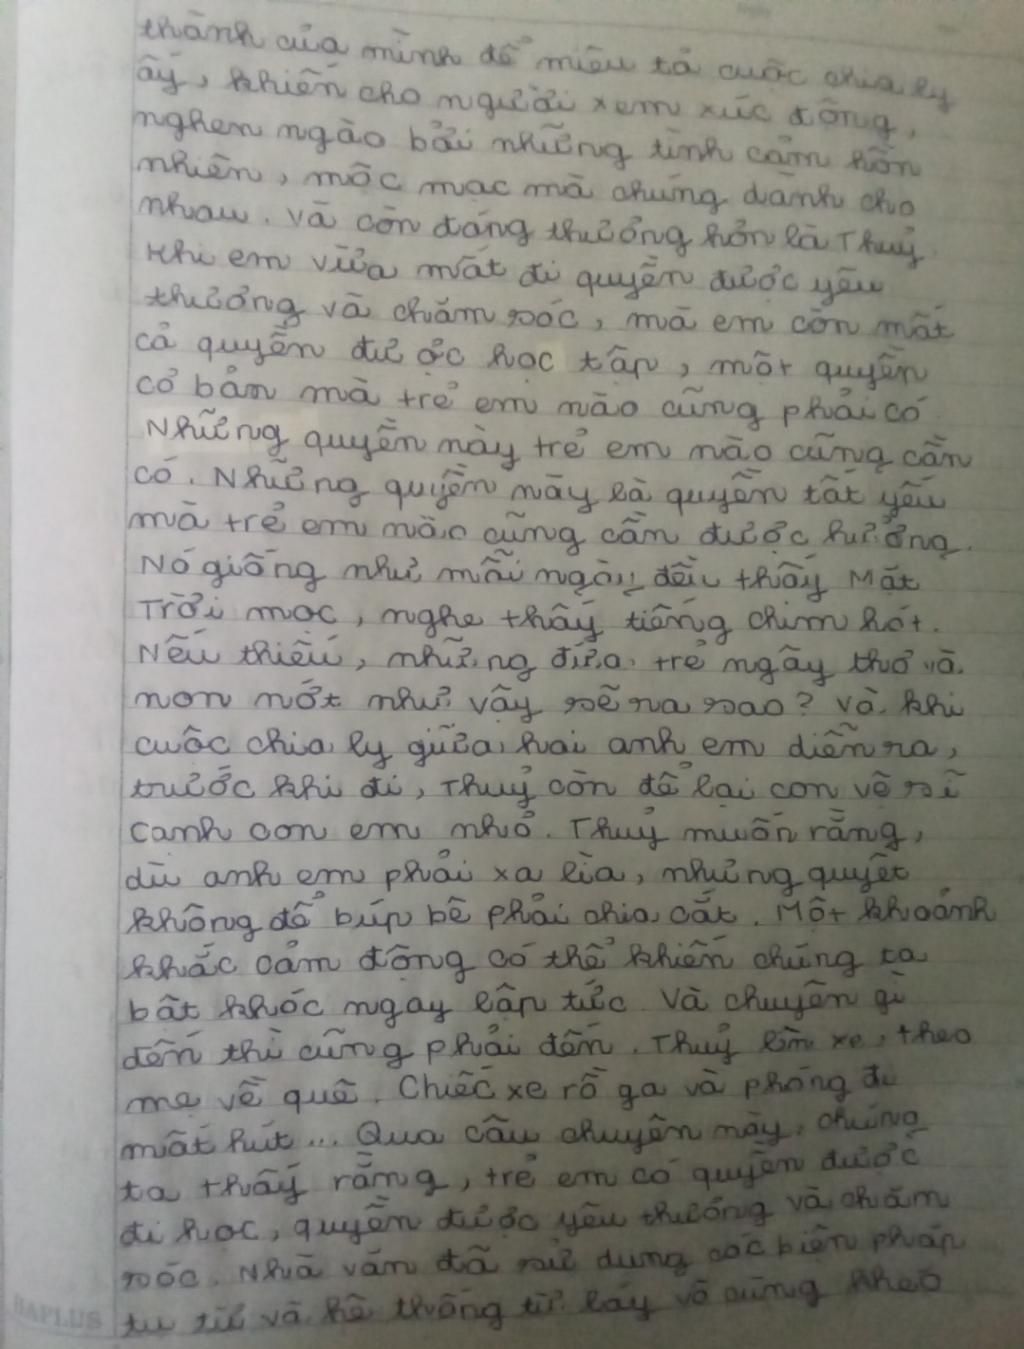 thành của mình để miêu tả cuộc chia ly
ấy, khiến cho người xem xúc động,
nghẹn ngào bởi những tình cảm hồn
nhiên, mộc mạc mà chúng dành cho
nhau. Và còn đáng thương hơn là Thuỷ
Khi em vừa mất đi quyền được yêu
thương và chăm sóc, mà em còn mất
cả quyền được học tập, một quyền
cơ bản mà trẻ em nào cũng phải có
Những quyền này trẻ em nào cũng cần
có. Những quyền này là quyền tất yếu
mà trẻ em nào cũng cần được hưởng.
Nó giống như mỗi ngày đều thấy Mặt
Trời mọc, nghe thấy tiếng chim hót.
Nếu thiếu, những đứa trẻ ngây thơ và
non nớt như vậy sẽ ra sao? Và khi
cuộc chia ly giữa hai anh em diễn ra,
trước khi đi, Thuỷ còn để lại con vệ sĩ
cạnh con em nhỏ. Thuỷ muốn rằng,
dù anh em phải xa lìa, nhưng quyết
không để búp bê phải chia cắt. Một khoảnh
khắc cảm động có thể khiến chúng ta
bật khóc ngay lập tức. Và chuyện gì
đến thì cũng phải đến. Thuỷ lên xe, theo
mẹ về quê. Chiếc xe rồ ga và phóng đi
mất hút... Qua câu chuyện này, chúng
ta thấy rằng, trẻ em có quyền được
đi học, quyền được yêu thương và chăm
sóc. Nhà văn đã sử dụng các biện pháp
tu từ và hệ thống từ láy vô cùng khéo
HAPLUS